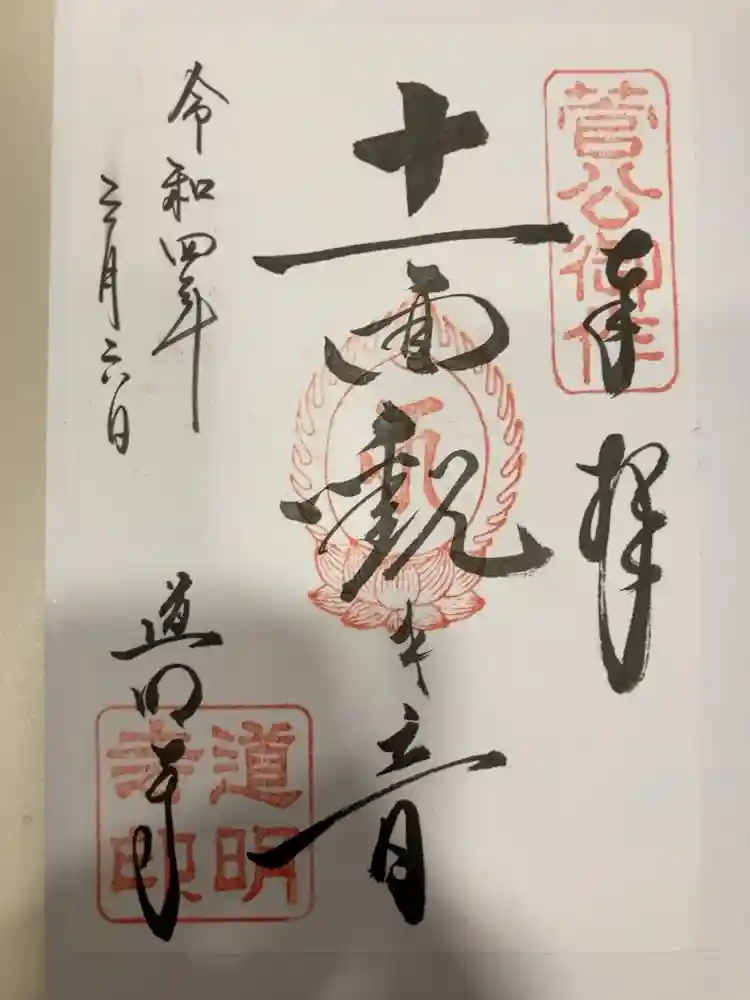 菅公御作
奉拝
十一面観世音
令和四年
三月六日
道明寺
道明寺印